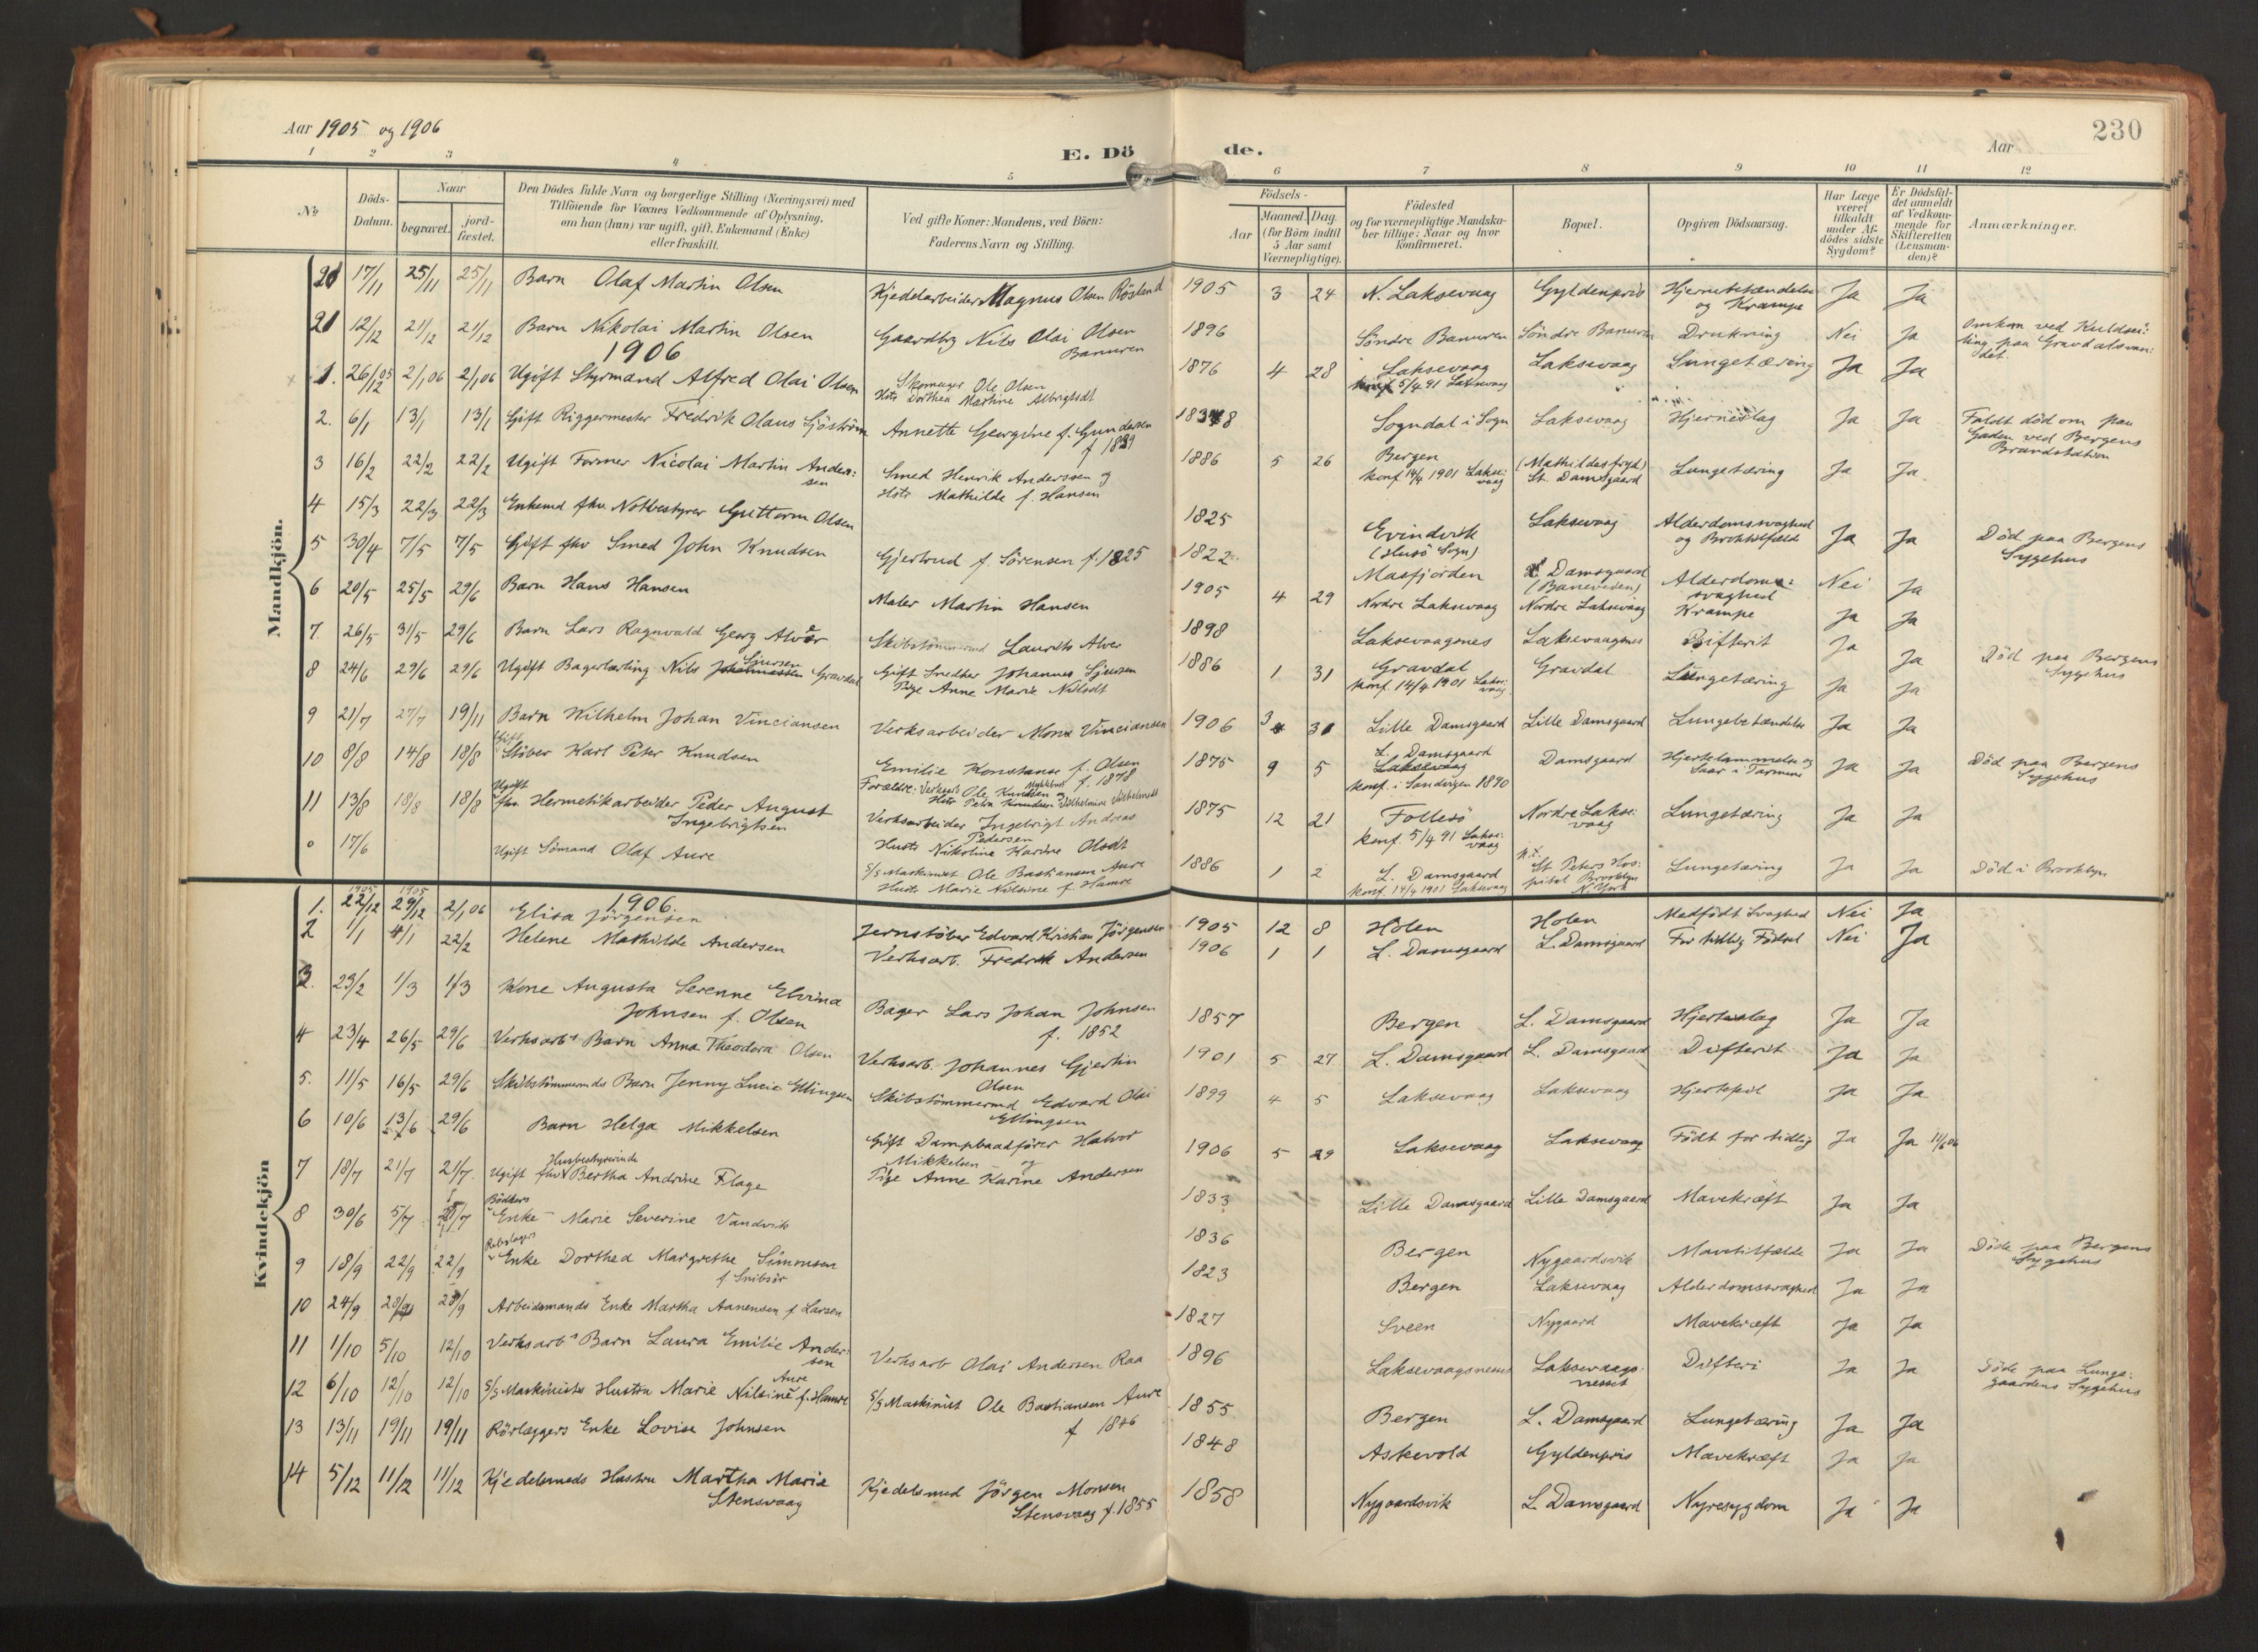 Aar 1905 og 1906
230
Aar
E. Dö de.
1 2 3 4 5 6 7 8 9 10 11 12
No
Döds-Datum.
Naar
begravet. jordfæstet.
Den Dödes fulde Navn og borgerlige Stilling (Næringsvei) med
Tilföiende for Voxnes Vedkommende af Oplysning,
om han (hun) var ugift, gift, Enkemand (Enke)
eller fraskilt.
Ved gifte Koner: Mandens, ved Börn:
Faderens Navn og Stilling.
Födsels-
Aar Maaned. Dag.
(for Börn indtil
5 Aar samt
Værnepligtige).
Födested
og for værnepligtige Mandskaber tillige: Naar og hvor
Konfirmeret.
Bopæl.
Opgiven Dödsaarsag.
Har Læge
været
tilkaldt
under Afdödes sidste
Sygdom?
Er Dödsfaldet anmeldt
af Vedkommende for
Skifteretten
(Lensmanden)?
Anmærkninger.
Mandkjön.
20 17/11 25/11 25/11 Barn Olaf Martin Olsen Kjedelarbeider Magnus Olsen Røsland 1905 3 24 N. Laksevaag Gyldenpris Hjernebetændelse og Krampe Ja Ja
21 12/12 21/12 21/12 Barn Nikolai Martin Olsen Gaardbr Nils Olai Olsen Banuren 1896 Söndre Banuren Söndre Banuren Drukning Nei Ja Omkom ved Kuldseiling paa Gravdalsvandet.
1906
1. 26/12 05 2/1 06 2/1 06 Ugift Styrmand Alfred Olai Olsen Skomager Ole Olsen Hstr Dorthea Martine Albrigtsdt 1876 4 28 Laksevaag konf 5/4 91 Laksevaag Laksevaag Lungetæring Ja Ja
2. 6/1 13/1 13/1 Gift Riggermester Fredrik Olaus Sjöström Annette Georgine f. Gundersen f 1839 18348 Sogndal i Sogn Laksevaag Hjerneslag Ja Ja Faldt död om paa Gaden ved Bergens Brandstation
3 16/2 22/2 22/2 Ugift Former Nicolai Martin Andersen Smed Henrik Anderssen og Hstr Mathilde f. Hansen 1886 5 26 Bergen konf 14/4 1901 Laksevaag (Mathildesfryd) St. Damsgaard Lungetæring Ja Ja
4 15/3 22/3 22/3 Enkemd fhv. Notbestyrer Guttorm Olsen 1825 Evindvik (Husö Sogn) Laksevaag Alderdomssvaghed og Broktilfælde Ja Ja Död paa Bergens Sygehus
5 30/4 7/5 7/5 Gift fhv Smed John Knudsen Gjertrud f. Sörensen f. 1825 1822 Masfjorden L. Damsgaard (Baneveien) Alderdomssvaghed Nei Ja
6 20/5 25/5 29/6 Barn Hans Hansen Maler Martin Hansen 1905 4 29 Nordre Laksevaag Nordre Laksevaag Krampe Ja Ja
7. 26/5 31/5 29/6 Barn Lars Ragnvald Georg Alver Skibstömmermd Laurits Alver 1898 Laksevaagsnes Laksevaagsnes Difterit Ja Ja Död paa Bergens Sygehus
8 24/6 29/6 29/6 Ugift Bagerlærling Nils Sjursen Gravdal Gift Smedker Johannes Sjursen Pige Anne Marie Nilsdt 1886 1 31 Gravdal konf. 14/4 1901 Laksevaag Gravdal Lungetæring Ja Ja
9 21/7 27/7 19/11 Barn Wilhelm Johan Vinciansen Verksarbeider Mons Vinciansen 1906 3 31 Lille Damsgaard Lille Damsgaard Lungebetændelse Ja Ja
10 8/8 14/8 18/8 Gift Stöber Karl Peter Knudsen Emilie Konstanse f. Olsen f. 1878 Forældre: Verksarb Ole Knudsen Myklebust og Hstr Petra Knudsen Wilhelmine Wilhelmsdt 1875 9 5 L. Damsgaard Laksevaag konf. i Sandvigen 1890 Damsgaard Hjertelammelse og Saar i Tarmene Ja Ja Död paa Bergens Sygehus
11 13/8 18/8 18/8 Ugift fhv Hermetikarbeider Peder August Ingebrigtsen Verksarbeider Ingebrigt Andreas Pedersen Hustr Nikoline Karine Olsdt 1875 12 21 Follesö konf. 5/4 91 Laksevaag Nordre Laksevaag Lungetæring Ja Ja
0 17/6 Ugift Sömand Olaf Aure S/S Maskinist Ole Bastiansen Aure Hustr Marie Nilsine f. Hamre 1886 1 2 L. Damsgaard konf 14/4 1901 Laksevaag St Peters Hospital Brooklyn N. York Lungetæring Ja Ja Död i Brooklyn
Kvindekjön
1906.
1. 1905 22/12 1905 29/12 2/1 06 Elisa Jörgensen Jernstöber Edvard Kristian Jörgensen 1905 12 8 Holen Holen Medfödt Svaghed Nei Ja
2 1/1 4/1 22/2 Helene Mathilde Andersen Verksarb. Fredrik Andersen 1906 1 1 L. Damsgaard L. Damsgaard For tidlig Födsel Nei Ja
3. 23/2 1/3 1/3 Kone Augusta Serenne Elvina Johnsen f. Olsen Bager Lars Johan Johnsen f. 1852 1857 Bergen L. Damsgaard Hjerteslag Ja Ja
4 23/4 26/5 29/6 Verksarbs Barn Anna Theodora Olsen Verksarb. Johannes Gjertin Olsen 1901 5 27 L. Damsgaard L. Damsgaard Difterit Ja Ja
5. 11/5 16/5 29/6 Skibstömmermds Barn Jenny Lucie Ellingsen Skibstömmermd Edvard Olai Ellingsen 1899 4 5 Laksevaag Laksevaag Hjertefeil Ja Ja
6 10/6 13/6 29/6 Barn Helga Mikkelsen Gift Dampbaadförer Halvor Mikkelsen og Pige Anne Karine Andersen 1906 5 29 Laksevaag Laksevaag Födt for tidlig Ja Ja 11/6 06
7 18/7 21/7 21/7. Ugift fhv Husbestyrerinde Bertha Andrine Flage 1833 Lille Damsgaard Lille Damsgaard Mavekræft Ja Ja
8 30/6 5/7 5/7 Bödkers Enke Marie Severine Vandvik 1836 Bergen Nygaardsvik Mavetilfælde Ja Ja Döde paa Bergens Sygehus
9 18/9 22/9 22/9 Rebslagers Enke Dorthea Margrethe Simonsen f Snibsör 1823 Bergen Laksevaag Alderdomssvaghed Ja Ja
10 24/9 28/9 28/9 Arbeidsmands Enke Martha Aanensen f Larsen 1827 Sveen Nygaard Mavekræft Ja Ja
11 1/10 5/10 12/10 Verksarbs Barn Laura Emilie Andersen Verksarb Olai Andersen Raa 1896 Laksevaagsneset Laksevaagsnesset Difteri Ja Ja Döde paa Lungegaardens Sygehus
12 6/10 12/10 12/10 S/S Maskinists Hustru Marie Nilsine Aure f. Hamre S/S Maskinist Ole Bastiansen Aure f 1846 1855 Bergen L. Damsgaard Lungetæring Ja Ja
13 13/11 19/11 19/11 Rörlæggers Enke Lovise Johnsen 1848 Askevold Gyldenpris Mavekræft Ja Ja
14 5/12 11/12 11/12 Kjedelsmeds Hustru Martha Marie Stensvaag Kjedelsmed Jörgen Monsen Stensvaag f. 1855 1858 Nygaardsvik L. Damsgaard Nyresygdom Ja Ja